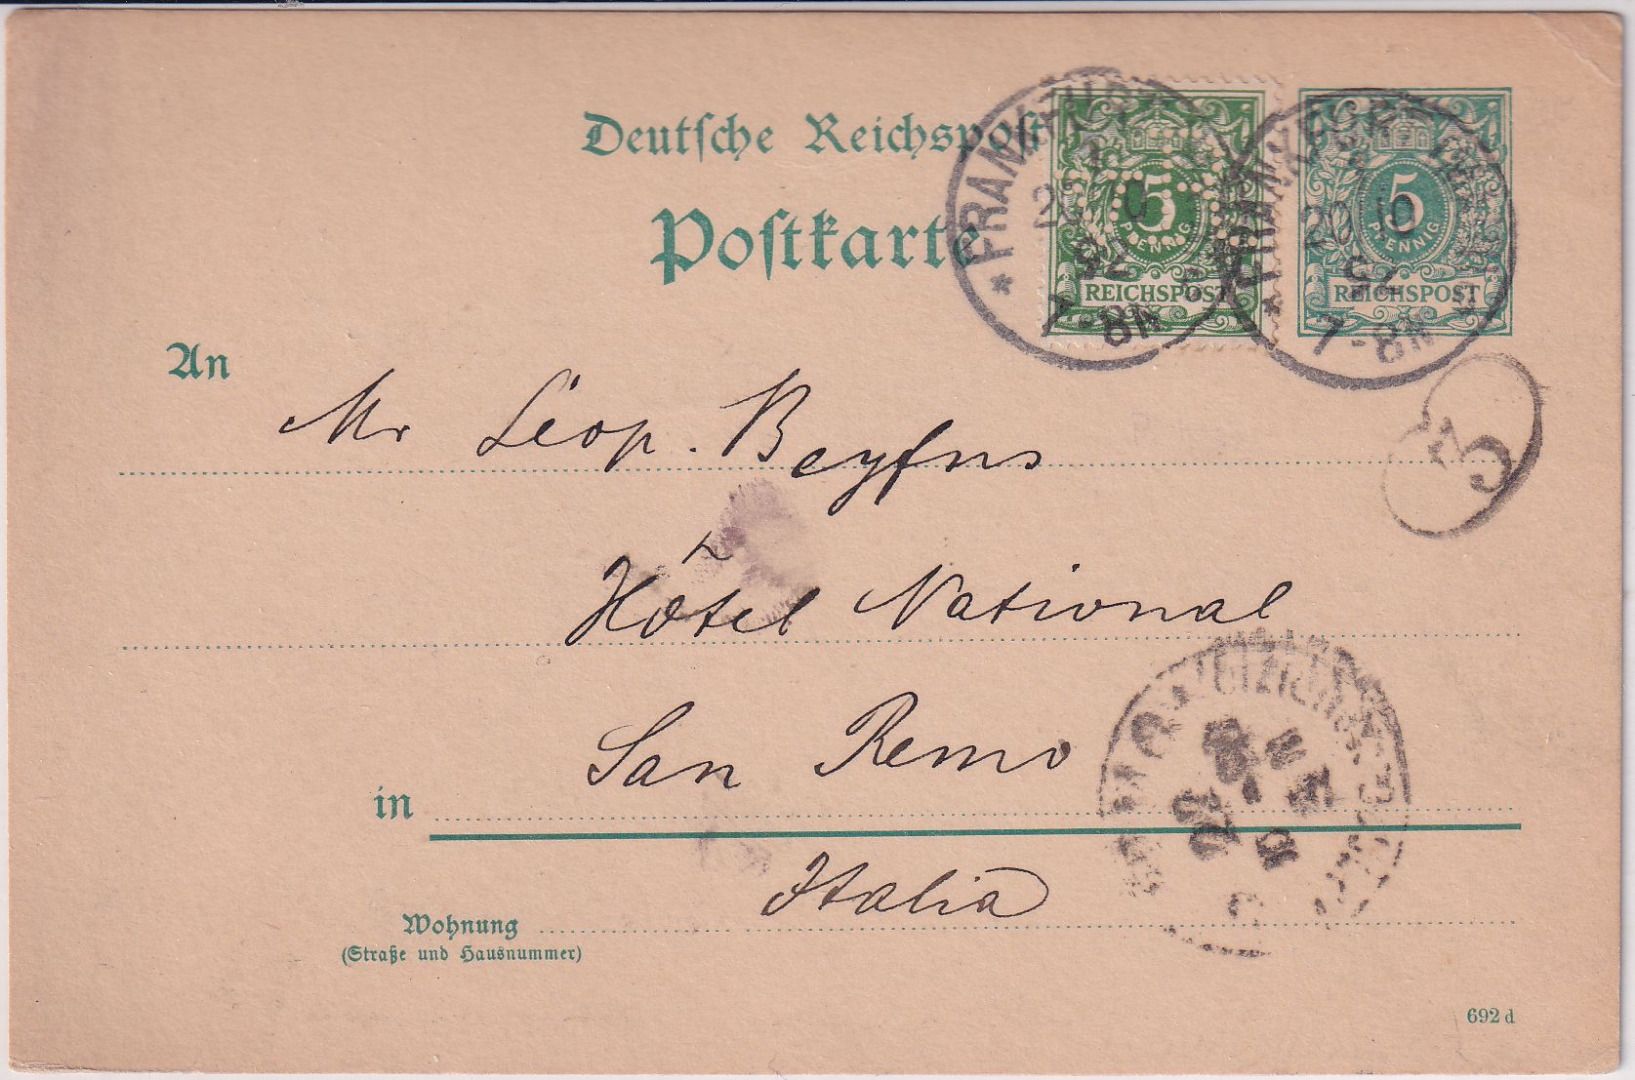 Deutsche Reichspost
Postkarte
5
PFENNIG
REICHSPOST
5
PFENNIG
REICHSPOST
* FRANKFURT
20 10
92
7-8N
* FRANKFURT
20 10
92
7-8N
3
An
Mr Léop. Beyfus
Hôtel National
San Remo
in
Italia
Wohnung
(Straße und Hausnummer)
692 d